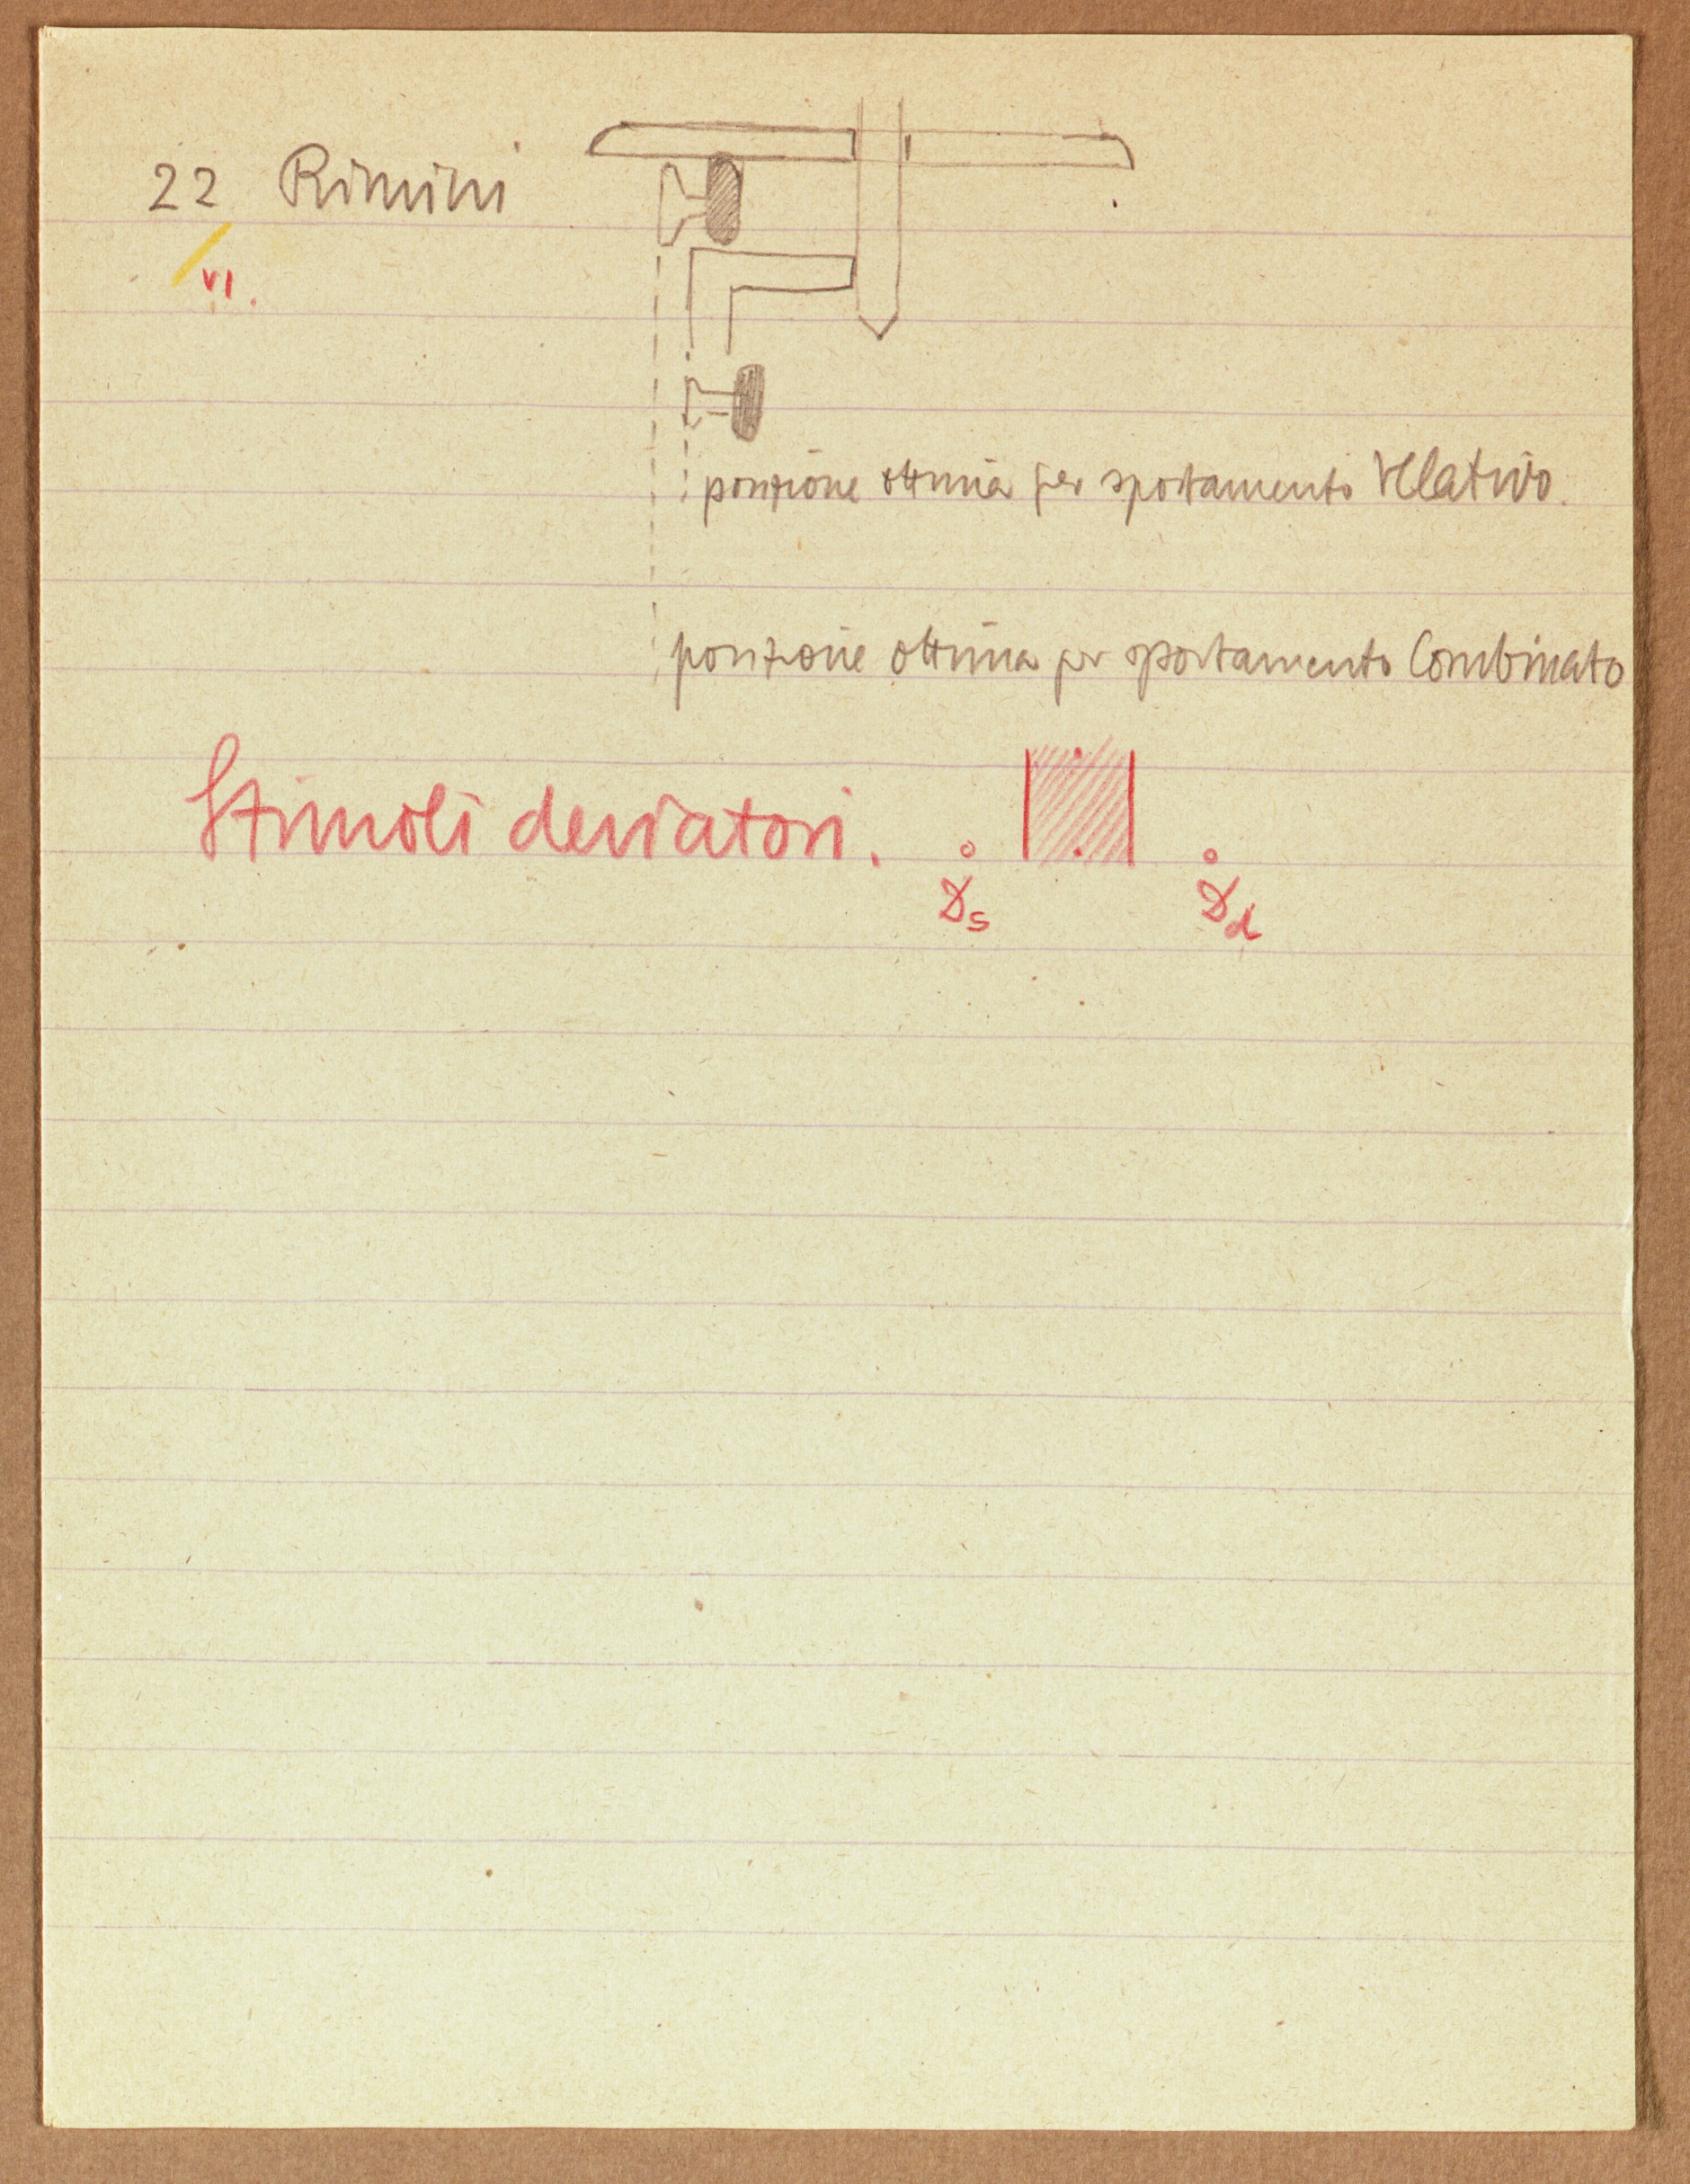 22 Rimini
VI.
posizione ottima per spostamento relativo.
posizione ottima per spostamento Combinato
Stimoli deviatori.
Ds Dd